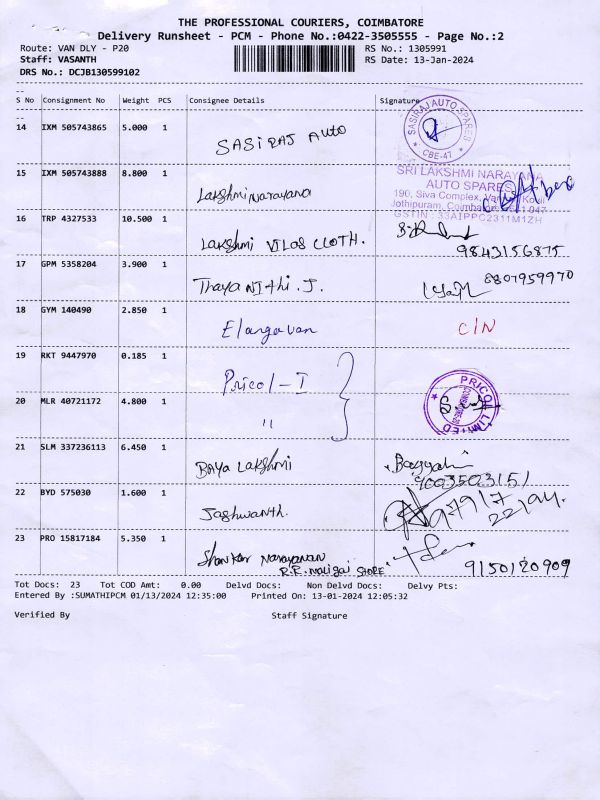 THE PROFESSIONAL COURIERS, COIMBATORE
Delivery Runsheet - PCM - Phone No.:0422-3505555 - Page No.:2
Route: VAN DLY - P20 RS No.: 1305991
Staff: VASANTH RS Date: 13-Jan-2024
DRS No.: DCJB130599102
S No Consignment No Weight PCS Consignee Details Signature
14 IXM 505743865 5.000 1 SASIRAJ AUTO SASIRAJ AUTO SPARES * CBE-47 *
15 IXM 505743888 8.800 1 Lakshmi Narayana SRI LAKSHMI NARAYANA
AUTO SPARES
190, Siva Complex,
Jothipuram, Coimbatore
GSTIN : 33AIPPC2311M1ZH
16 TRP 4327533 10.500 1 LAKSHMI VILAS CLOTH. 9843156875
17 GPM 5358204 3.900 1 Thaya Nithi . J. 8807959970
18 GYM 140490 2.850 1 Elangovan C/N
19 RKT 9447970 0.185 1 Pricol - I
20 MLR 40721172 4.800 1 " PRICOL LIMITED
21 SLM 337236113 6.450 1 BAYA LAKSHMI 9003503151
22 BYD 575030 1.600 1 Jashwanth. 97917
22194.
23 PRO 15817184 5.350 1 Shankar Narayanan
R.R. Maligai STORE 9150120909
Tot Docs: 23 Tot COD Amt: 0.00 Delvd Docs: Non Delvd Docs: Delvy Pts:
Entered By :SUMATHIPCM 01/13/2024 12:35:00 Printed On: 13-01-2024 12:05:32
Verified By Staff Signature